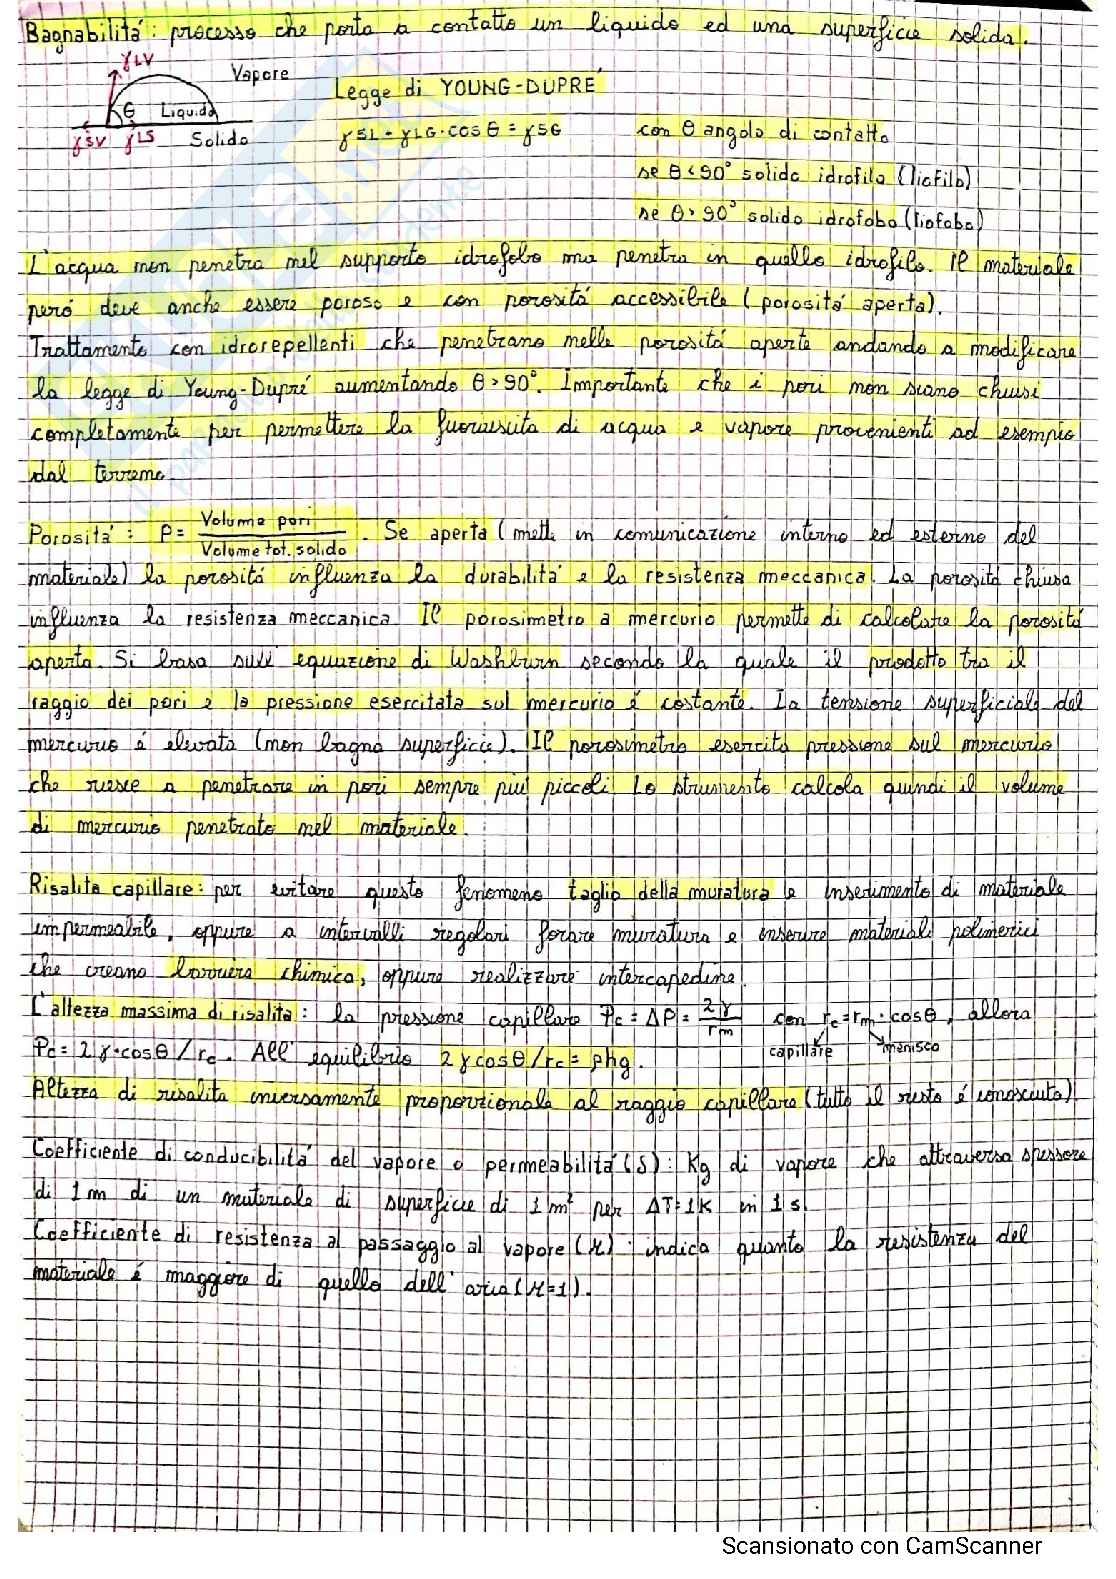 Bagnabilitá: processo che porta a contatto un liquido ed una superficie solida.
γLV
Vapore
Legge di YOUNG-DUPRÉ
θ Liquido
γSV γLS Solido
γSL + γLG·cosθ = γSG
con θ angolo di contatto
se θ<90° solido idrofilo (liofilo)
se θ>90° solido idrofobo (liofobo)
L'acqua non penetra nel supporto idrofobo ma penetra in quello idrofilo. Il materiale
peró deve anche essere poroso e con porositá accessibile (porositá aperta).
Trattamento con idrorepellenti che penetrano nelle porositá aperte andando a modificare
la legge di Young-Dupré aumentando θ>90°. Importante che i pori non siano chiusi
completamente per permettere la fuoriuscita di acqua e vapore provenienti ad esempio
dal terreno.
Porositá: P= Volume pori / Volume tot. solido . Se aperta (mette in comunicazione interno ed esterno del
materiale) la porositá influenza la durabilitá e la resistenza meccanica. La porositá chiusa
influenza la resistenza meccanica. Il porosimetro a mercurio permette di calcolare la porositá
aperta. Si basa sull'equazione di Washburn secondo la quale il prodotto tra il
raggio dei pori e la pressione esercitata sul mercurio é costante. La tensione superficiale del
mercurio é elevata (non bagna superficie). Il porosimetro esercita pressione sul mercurio
che riesce a penetrare in pori sempre piú piccoli. Lo strumento calcola quindi il volume
di mercurio penetrato nel materiale.
Risalita capillare: per evitare questo fenomeno taglio della muratura e inserimento di materiale
impermeabile, oppure a intervalli regolari forare muratura e inserire materiali polimerici
che creano barriera chimica, oppure realizzare intercapedine.
L'altezza massima di risalita: la pressione capillare Pc=ΔP= 2γ / rm con rc=rm·cosθ, allora
capillare menisco
Pc= 2γ·cosθ/rc. All'equilibrio 2γcosθ/rc= ρhg.
Altezza di risalita inversamente proporzionale al raggio capillare (tutto il resto é conosciuto).
Coefficiente di conducibilitá del vapore o permeabilitá (δ): Kg di vapore che attraversa spessore
di 1m di un materiale di superficie di 1m² per ΔT=1K in 1s.
Coefficiente di resistenza al passaggio al vapore (μ): indica quanto la resistenza del
materiale é maggiore di quello dell'aria (μ=1).
Scansionato con CamScanner